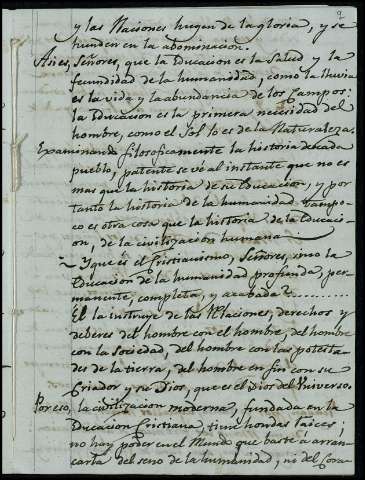 y las Naciones huyen de la gloria, y se
hunden en la abominacion.
Asi es, Señores, que la Educacion es la Salud y la
fecundidad de la humanidad, como la lluvia
es la vida y la abundancia de los Campos:
la Educacion es la primera necesidad del
hombre, como el Sol lo es de la Naturaleza.
Examinando filosoficamente la historia de cada
pueblo, patente se vé al instante que no es
mas que la historia de su Educacion, y por
tanto la historia de la humanidad tampo-
co es otra cosa que la historia de la Educaci-
on, de la civilizacion humana
Y que es el Cristianismo, Señores, sino la
Educacion de la humanidad profunda, per-
manente, completa, y acabada?..........
El la instruye de las Relaciones, derechos y
deberes del hombre con el hombre, del hombre
con la Sociedad, del hombre con las potesta-
des de la tierra, del hombre en fin con su
Criador y su Dios, que es el Dios del Universo.
Por eso, la civilizacion moderna, fundada en la
Educacion Cristiana, tiene hondas raices;
no hay poder en el Mundo que baste á arran-
carla del seno de la humanidad, ni del Cora-